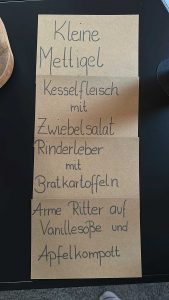 Kleine
Mettigel
Kesselfleisch
mit
Zwiebelsalat
Rinderleber
mit
Bratkartoffeln
Arme Ritter auf
Vanillesoße und
Apfelkompott